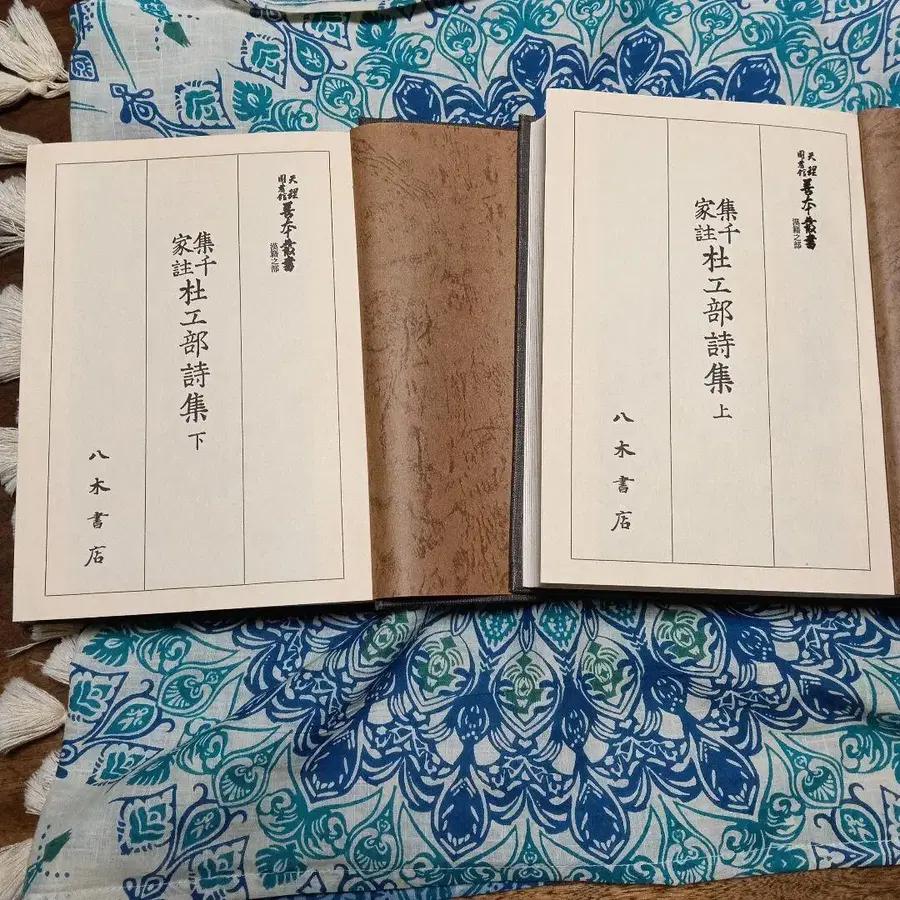 天理
圖書館
善本叢書
漢籍之部
集千
家註
杜工部詩集 上
八木書店
天理
圖書館
善本叢書
漢籍之部
集千
家註
杜工部詩集 下
八木書店